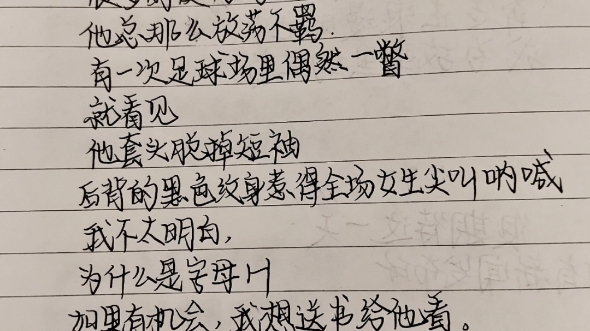 他总那么放荡不羁.
有一次足球场里偶然一瞥
就看见
他套头脱掉短袖
后背的黑色纹身惹得全场女生尖叫呐喊
我不太明白,
为什么是字母H
如果有机会,我想送书给他看。